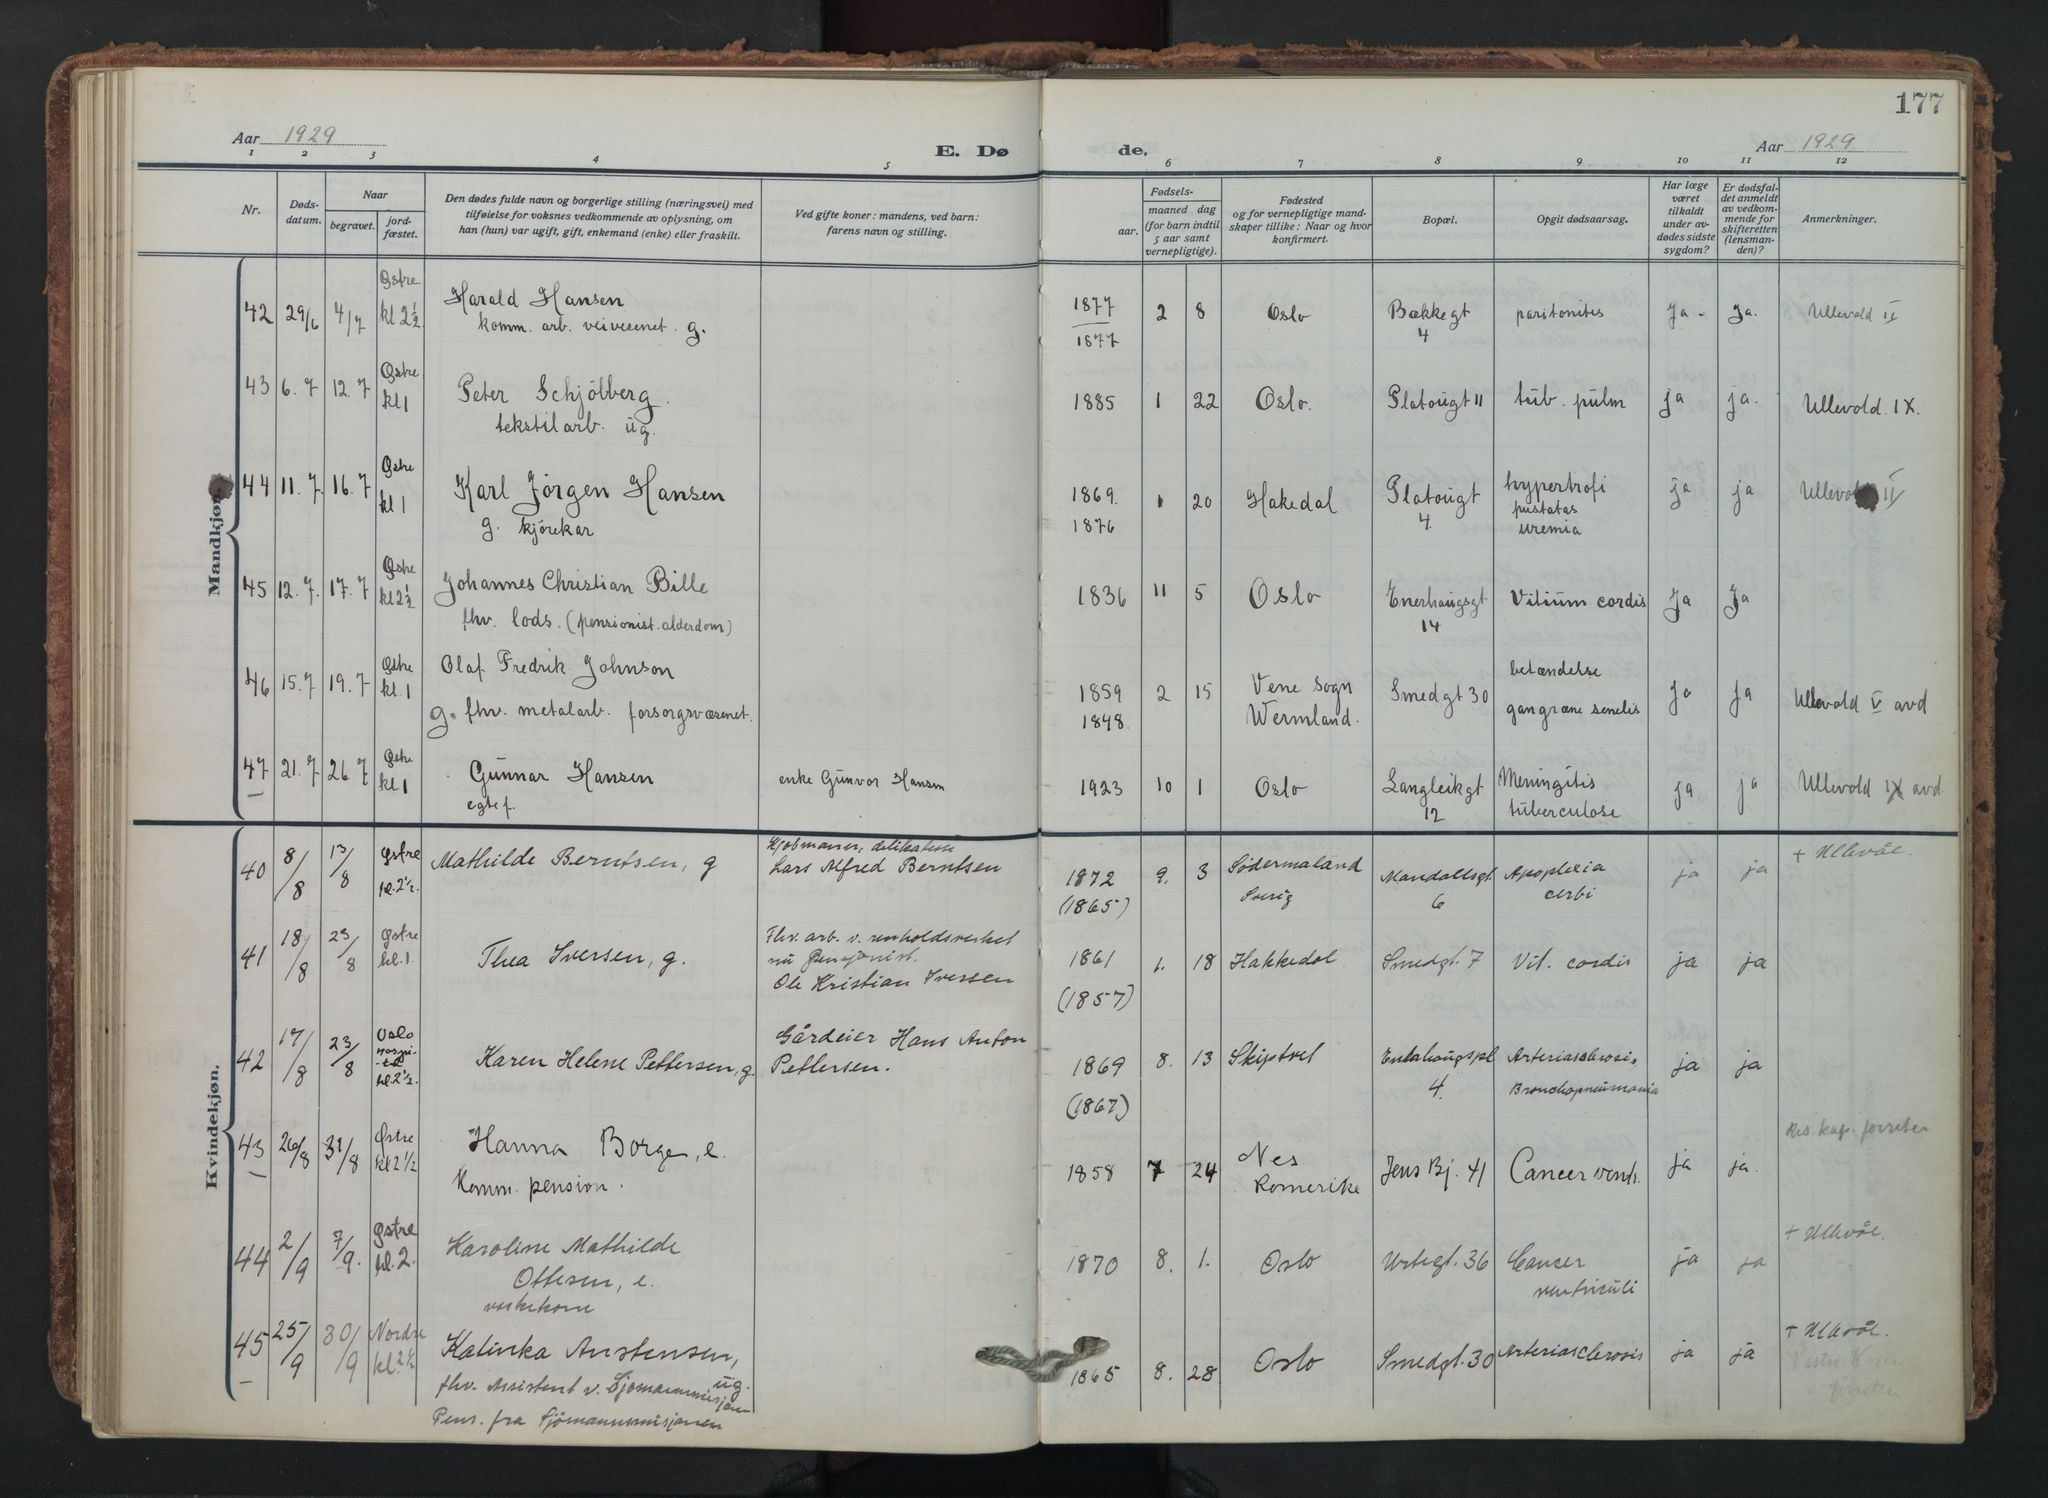 177
Aar 1929
E. Dø
de.
Aar 1929
1 2 3 4 5 6 7 8 9 10 11 12
Nr.
Døds-
datum.
Naar
begravet.
jord-
fæstet.
Den dødes fulde navn og borgerlige stilling (næringsvei) med
tilføielse for voksnes vedkommende av oplysning, om
han (hun) var ugift, gift, enkemand (enke) eller fraskilt.
Ved gifte koner: mandens, ved barn:
farens navn og stilling.
Fødsels-
aar.
maaned dag
(for barn indtil
5 aar samt
vernepligtige).
Fødested
og for vernepligtige mand-
skaper tillike: Naar og hvor
konfirmert.
Bopæl.
Opgit dødsaarsag.
Har læge
været
tilkaldt
under av-
dødes sidste
sygdom?
Er dødsfal-
det anmeldt
av vedkom-
mende for
skifteretten
(lensman-
den)?
Anmerkninger.
Mandkjøn.
42 29/6 4/7 Østre kl 2½
Harald Hansen
komm. arb. veivesenet. g.
1877 2 8 Oslo Bækkegt paritonitis Ja - Ja. Ullevold II
1877 4
43 6. 7 12. 7 Østre kl 1
Peter Schjölberg.
tekstilarb. ug.
1885 1 22 Oslo. Platougt 11 tub. pulm ja ja. Ullevold. IX.
44 11. 7. 16. 7 Østre kl 1
Karl Jörgen Hansen
g. kjörekar
1869. 1 20 Hakedal Platougt hypertrofi ja ja Ullevold II
1876 4. pustatas
uremia
45 12. 7. 17. 7 Østre kl 2½
Johannes Christian Bille
fhv. lods. (pensionist. alderdom)
1836 11 5 Oslo Enerhaugsgt Vitium cordis Ja Ja
14
46 15. 7 19. 7 Østre kl. 1
Olaf Fredrik Johnson
g. fhv. metalarb. forsorgsvæsenet.
1859 2 15 Vene Sogn Smedgt 30 betændelse Ja Ja Ullevold V avd
1848. Wermland. gangræne senelis
47 21. 7 26 7 Østre kl 1
Gunnar Hansen enke Gunvor Hansen
egtef.
1923 10 1 Oslo Langleikgt Meningitis ja ja Ullevold IX avd
12 tuberculose
Kvindekjøn.
40 8/8 13/8 Østre kl. 2½.
Mathilde Berntsen, g
Kjøbmann, delikatesse
Lars Alfred Berntsen
1872 9. 3 Södermaland Mandallsgt. Apoplexia ja ja + Ullevål.
(1865) Sverig 6 cerbi
41 18/8 23/8 Østre kl. 1.
Thea Iversen, g.
Fhv. arb. v. renholdsverket
nu Pensjonist.
Ole Kristian Iversen
1861 1. 18 Hakkedal Smedgt. 7 Vit. cordis ja ja
(1857)
42 17/8 23/8 Oslo Hospi-tal kl. 2½.
Karen Helene Pettersen, g.
Gårdeier Hans Anton
Pettersen.
1869 8. 13 Skiptvet Enerhaugspl Arteriasclerosis, ja ja
(1867) 4. Bronchopneumonia
43 26/8 31/8 Østre kl 2½
Hanna Borge, e.
Komm. pension.
1858 7 24 Nes Jens Bj. 41 Cancer ventr. ja ja. Res. kap. forretter
Romerike
44 2/9 7/9. Østre kl. 2.
Karoline Mathilde
Ottesen, e.
vaskekone
1870 8. 1. Oslo Urtegt. 36 Cancer ja ja + Ullevål.
ventriculi
45 25/9 30/9 Nordre kl. 2½
Katinka Anstensen,
ug.
fhv. Assistent v. Sjømannsmisjonen
Pens. fra Sjömannsmisjonen
1865 8. 28 Oslo Smedgt. 30 Arteriasclerosis ja ja + Ullevål.
forretter